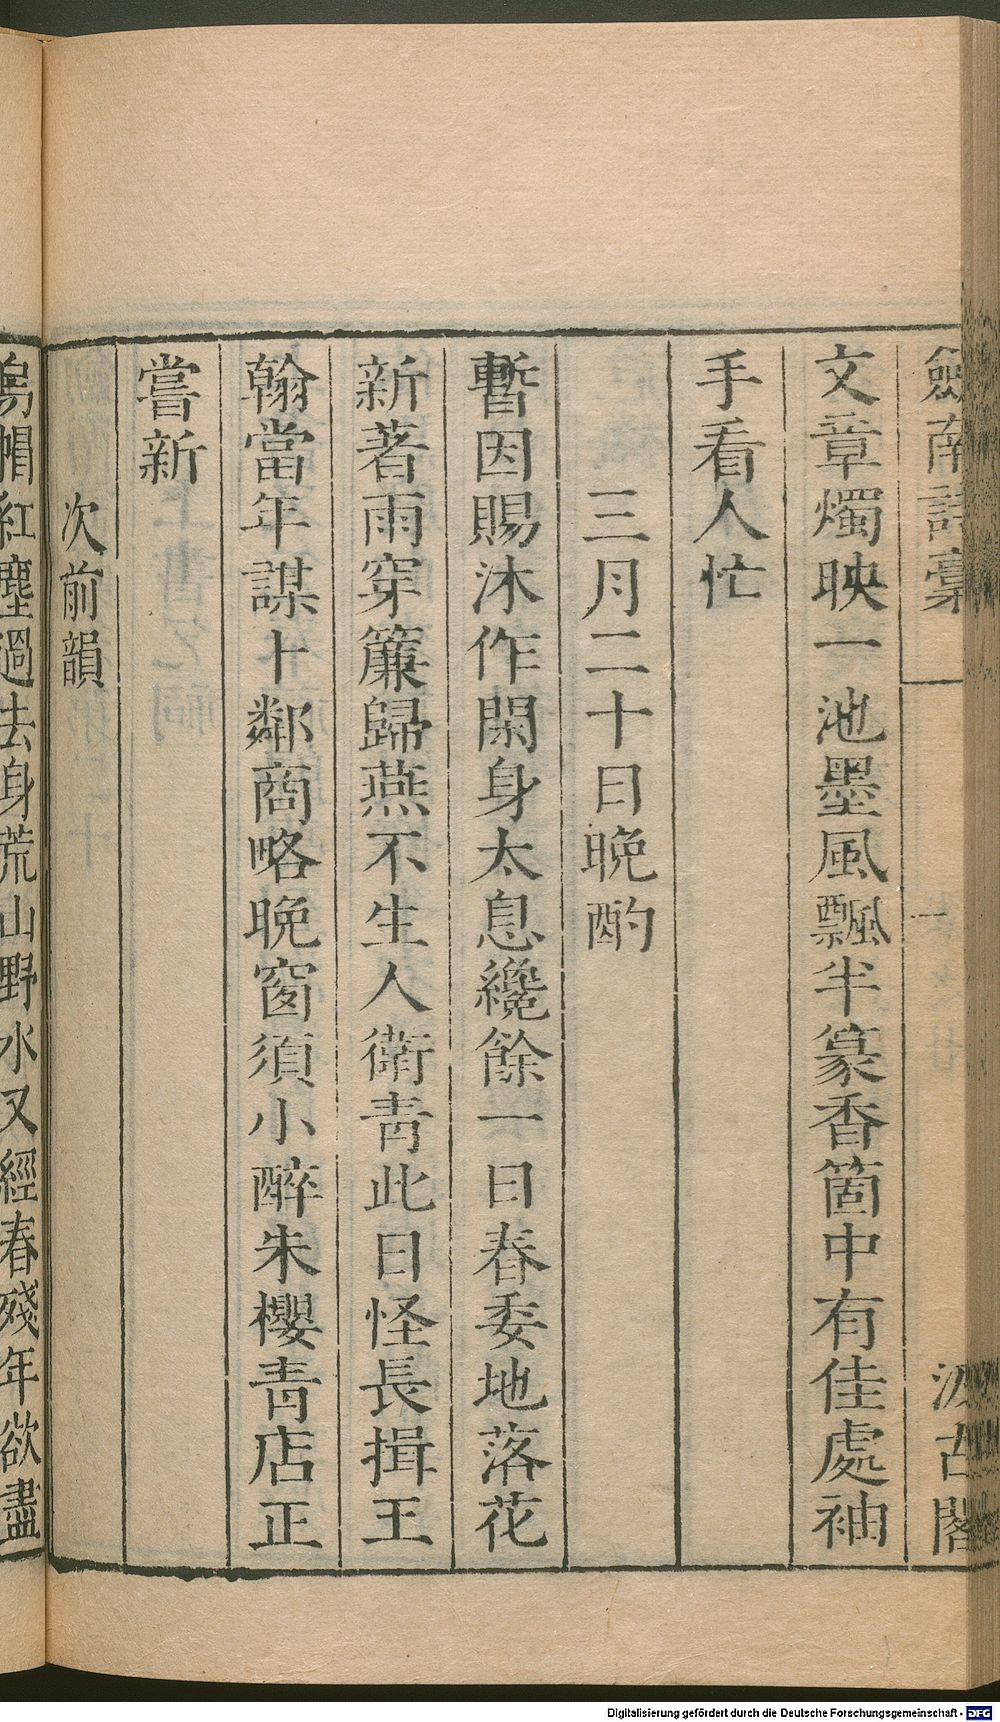 劍南詩稾
一
汲古閣
文章燭映一池墨風飄半篆香箇中有佳處袖
手看人忙
三月二十日晚酌
暫因賜沐作閑身太息纔餘一日春委地落花
新著雨穿簾歸燕不生人衛青此日怪長揖王
翰當年謀卜鄰商略晚窗須小醉朱櫻青店正
嘗新
次前韻
烏帽紅塵過去身荒山野水又經春殘年欲盡
Digitalisierung gefördert durch die Deutsche Forschungsgemeinschaft - DFG